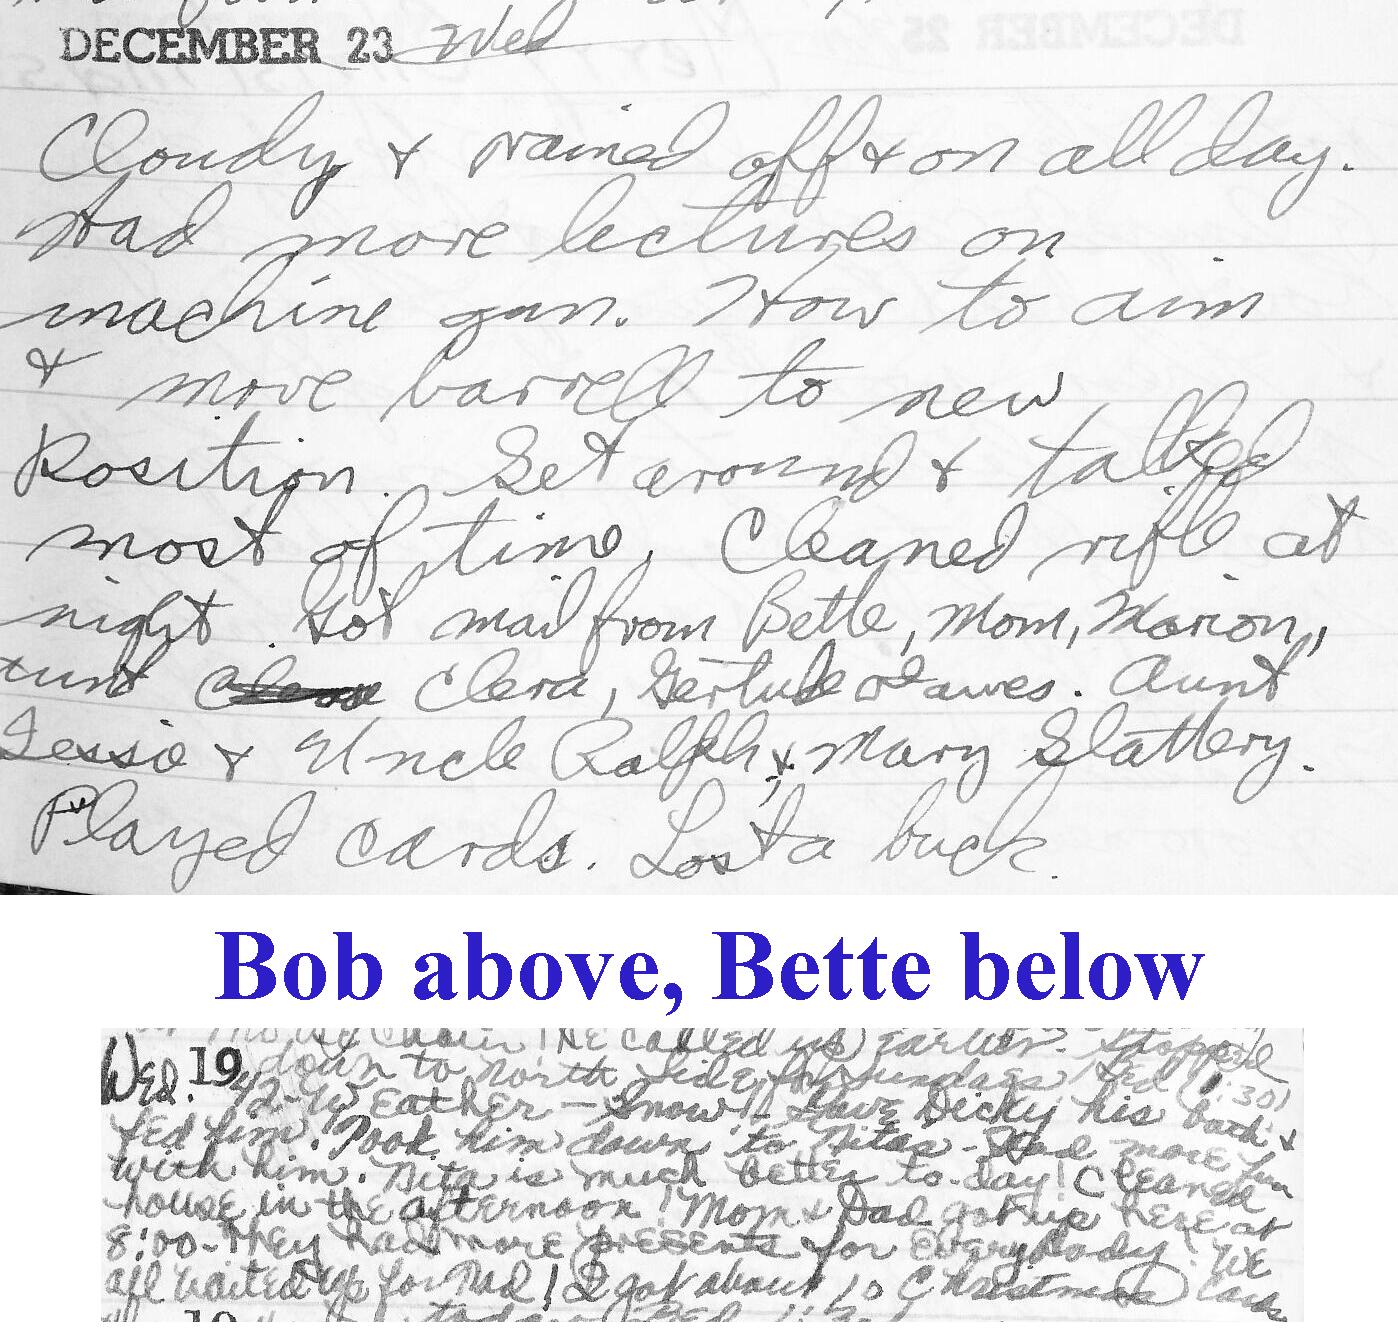 DECEMBER 23 Wed
Cloudy & rained off & on all day.
Had more lectures on
machine gun. How to aim
& move barrell to new
Position. Set around & talked
most of time. Cleaned rifle at
night. Got mail from Bette, Mom, Marion,
Aunt Clera, Gertude Aunt
Jessie & Uncle Ralph & Mary Slattery.
Played cards. Lost a buck.
Bob above, Bette below
he called us earlier. Stopped
Wed. 19 down to North Side for Sundaes! Bed 1:30!
42-Weather - Snow! - Gave Dicky his bath &
fed him! Took him down to Nitas - Had more fun
with him. Nita is much better to-day! Cleaned
house in the afternoon! Mom & Dad got up here at
8:00 - They had more presents for everybody! We
all waited up for Dad! I got about 10 Christmas Cards
19